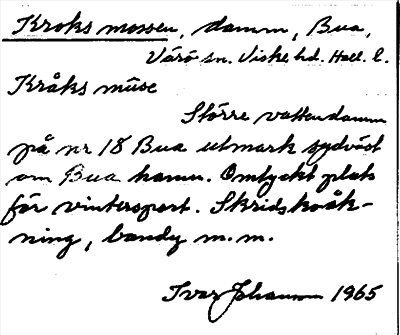 Kroks mossen, damm, Bua,
Värö sn. Viske hd. Hall. l.
Kråks måse
Större vattendamm
på nr 18 Bua utmark sydväst
om Bua hamn. Omtyckt plats
för vintersport. Skridskoåk-
ning, bandy m.m.
Ivar Johansson 1965